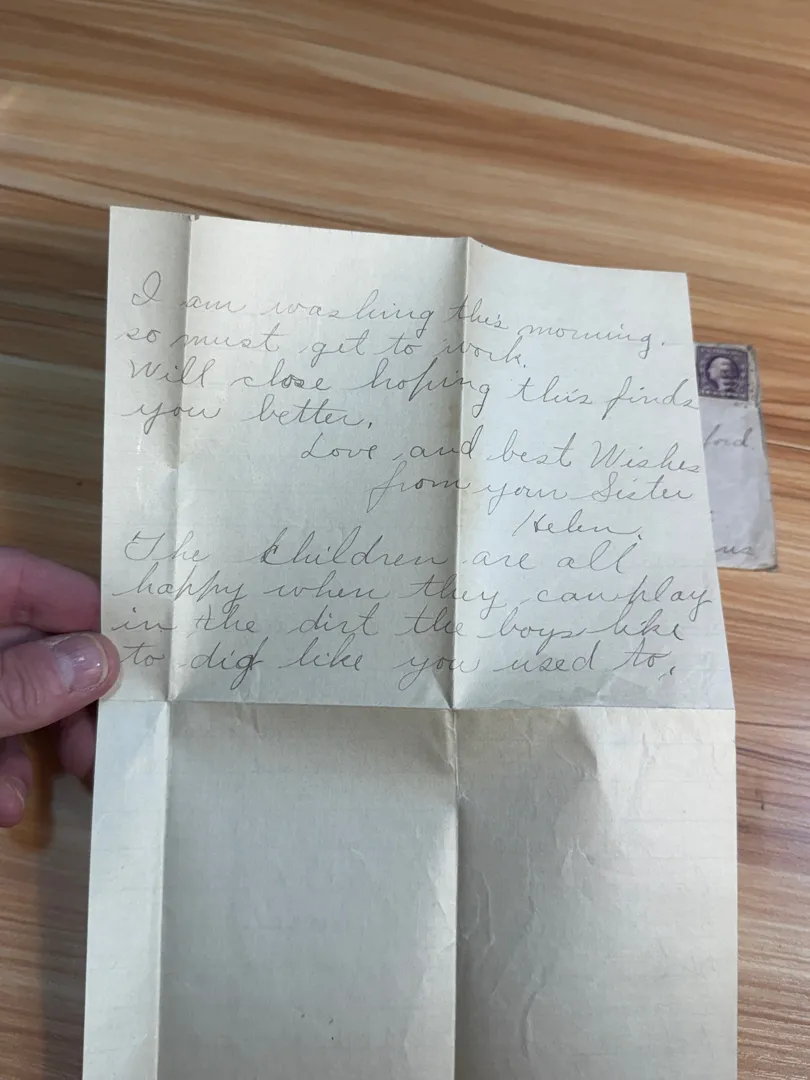 I am washing this morning.
so must get to work.
Will close hoping this finds
you better.
Love and best Wishes
from your Sister
Helen.
The Children are all
happy when they can play
in the dirt the boys like
to dig like you used to.
ford.